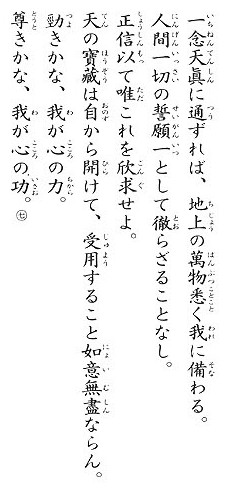 一念天眞に通ずれば、地上の萬物悉く我に備わる。
人間一切の誓願一として徹らざることなし。
正信以て唯これを欣求せよ。
天の寶藏は自から開けて、受用すること如意無盡ならん。
勁きかな、我が心の力。
尊きかな、我が心の功。㊆